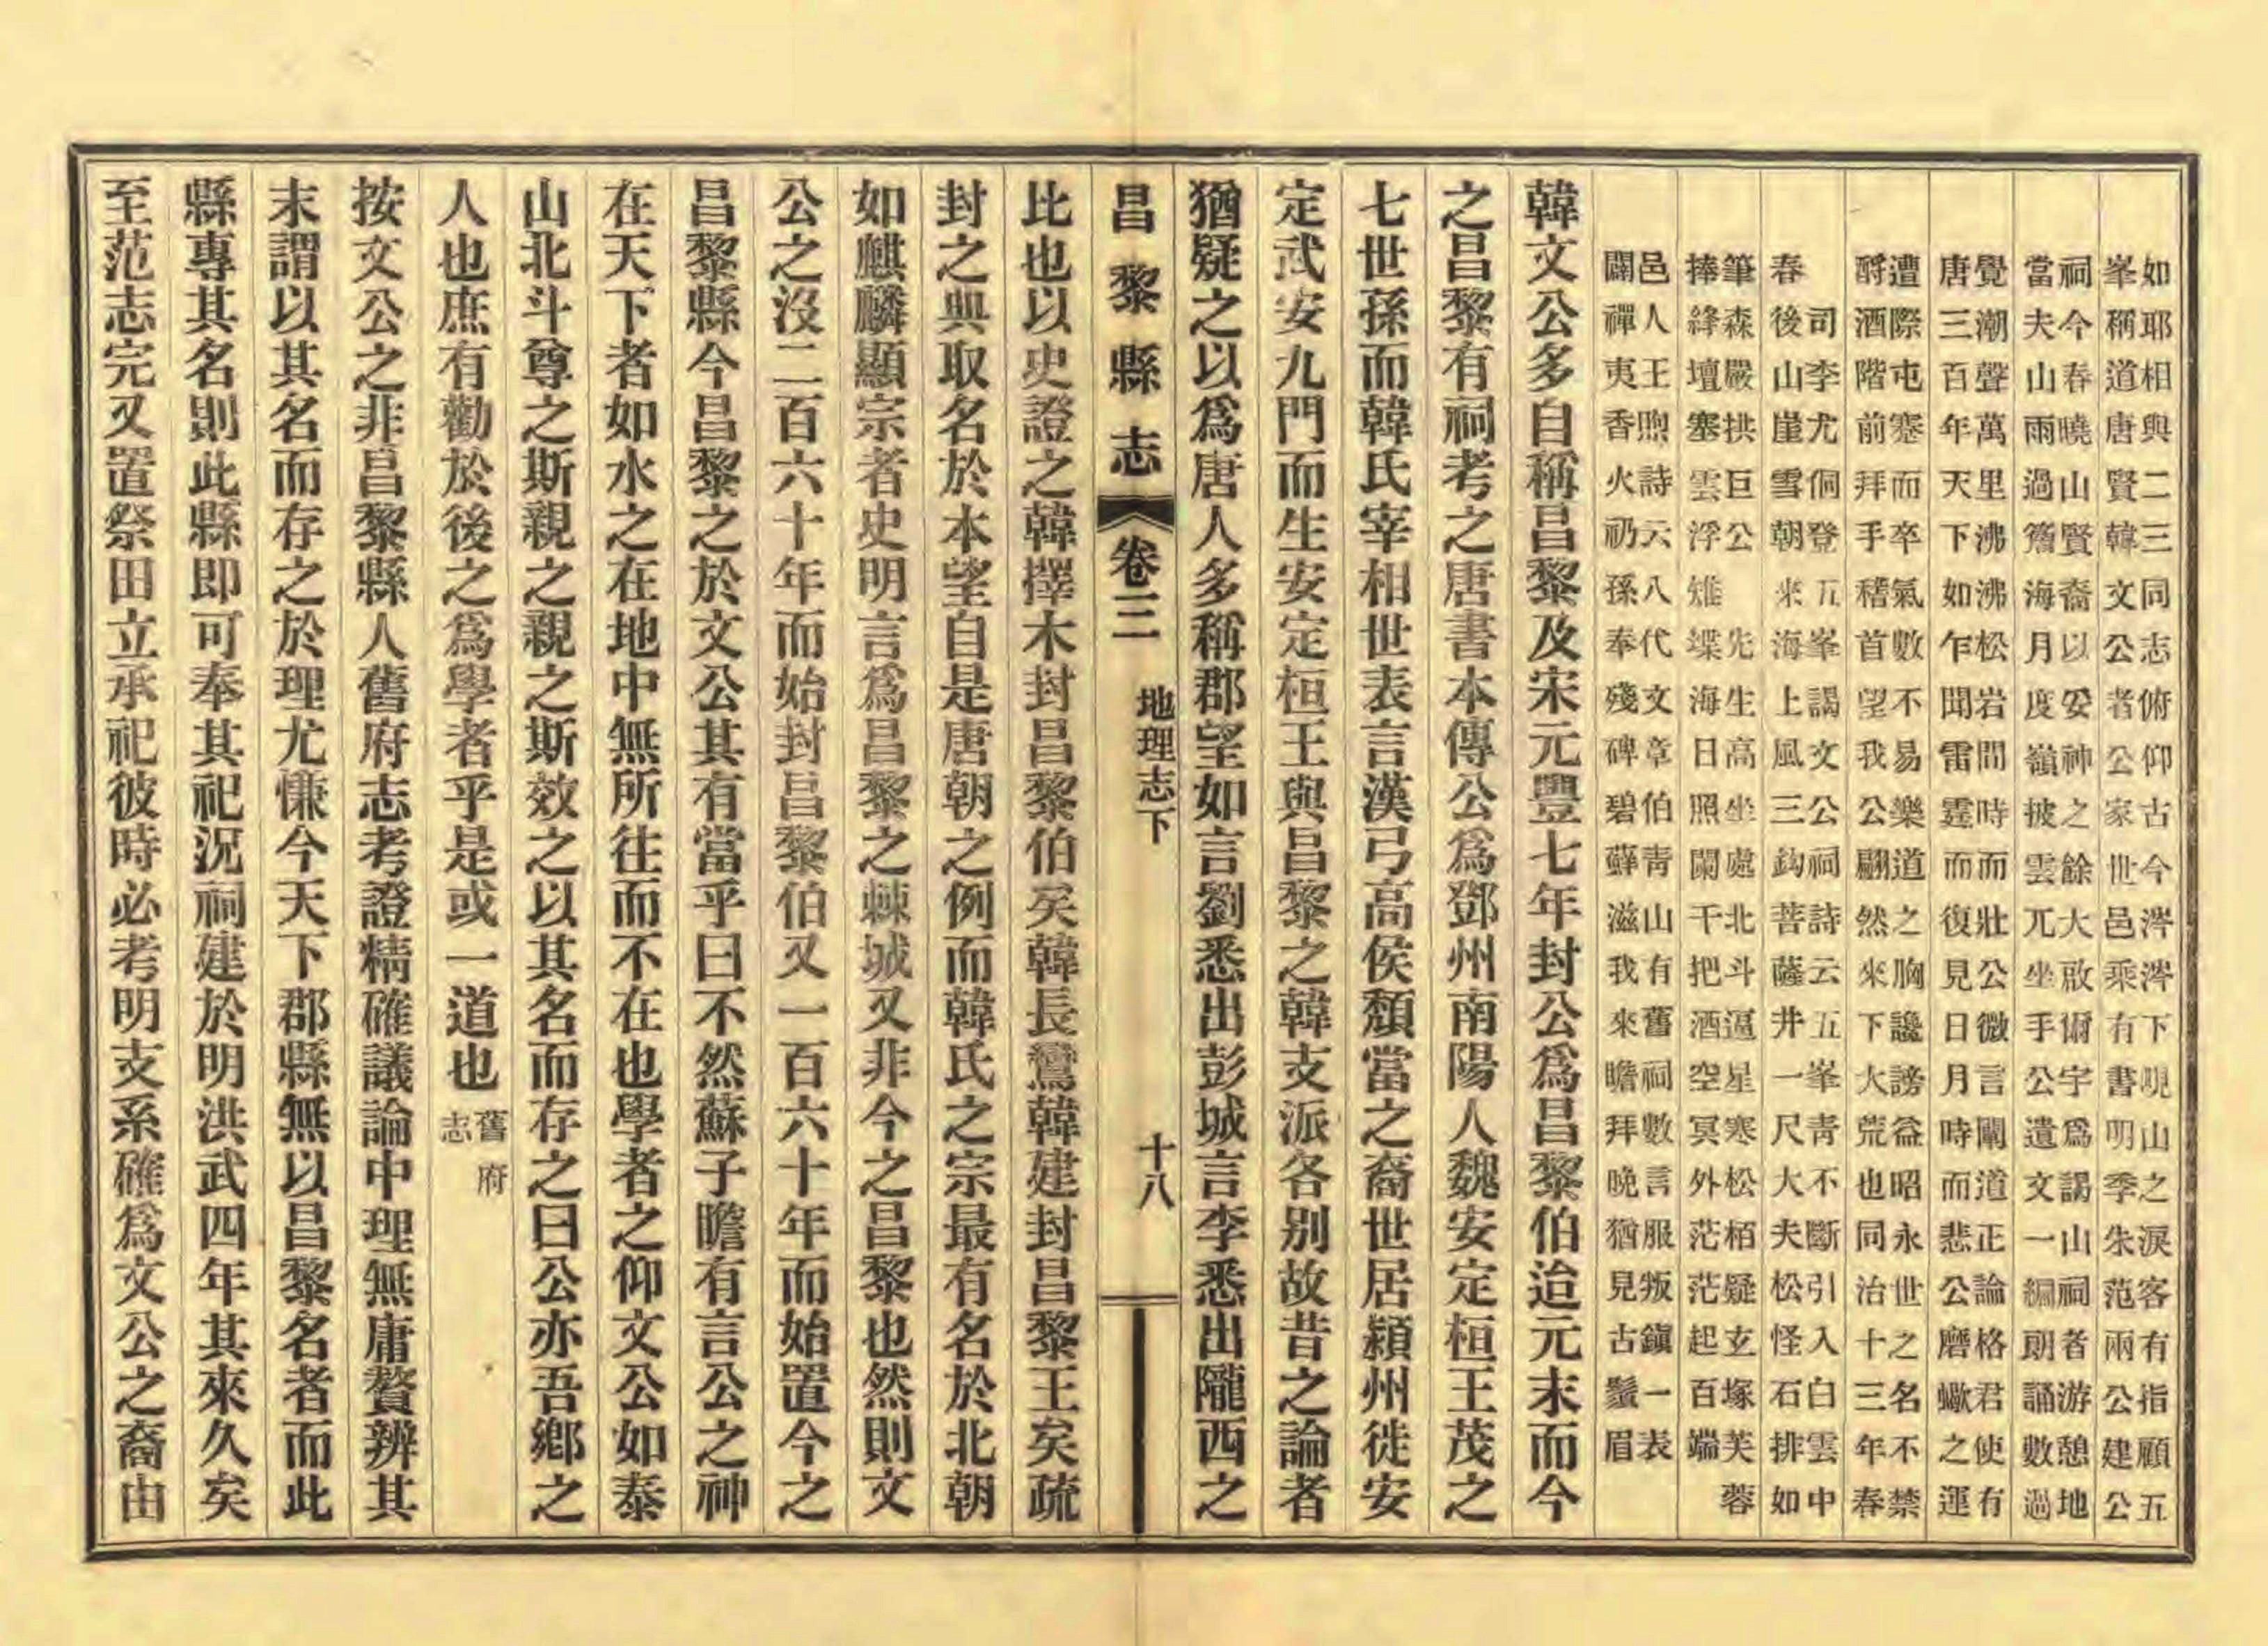 如耶相與二三同志俯仰古今涔涔下峴山之淚客有指顧五
峯稱道唐賢韓文公者公家世邑乘有書明季朱范兩公建公
祠今春曉山賢裔以妥神之餘大啟爾宇爲謁山祠者游憩地
當夫山雨過簷海月度嶺披雲兀坐手公遺文一編朗誦數過
覺潮聲萬里沸沸松岩間時而壯公微言闡道正論格君使有
唐三百年天下如乍聞雷霆而復見日月時而悲公磨蠍之運
遭際屯蹇而卒氣數不易樂道之胸讒謗益昭永世之名不禁
酹酒階前拜手稽首望我公翩然來下大荒也同治十三年春
司李尤侗登五峯謁文公祠詩云五峯青不斷引入白雲中
春後山崖雪朝來海上風三鈎菩薩井一尺大夫松怪石排如
筆森嚴拱巨公 先生高坐處北斗逼星寒松栢疑玄塚芙蓉
捧絳壇塞雲浮雉堞海日照闌干把酒空冥外茫茫起百端
邑人王煦詩云八代文章伯青山有舊祠數言服叛鎮一表
闢禪夷香火礽孫奉殘碑碧蘚滋我來瞻拜晚猶見古鬚眉
韓文公多自稱昌黎及宋元豐七年封公爲昌黎伯迨元末而今
之昌黎有祠考之唐書本傳公爲鄧州南陽人魏安定桓王茂之
七世孫而韓氏宰相世表言漢弓高侯頹當之裔世居潁州徙安
定武安九門而生安定桓王與昌黎之韓支派各别故昔之論者
猶疑之以爲唐人多稱郡望如言劉悉出彭城言李悉出隴西之
昌黎縣志 卷三 地理志下 十八
比也以史證之韓擇木封昌黎伯矣韓長鸞韓建封昌黎王矣疏
封之典取名於本望自是唐朝之例而韓氏之宗最有名於北朝
如麒麟顯宗者史明言爲昌黎之棘城又非今之昌黎也然則文
公之沒二百六十年而始封昌黎伯又一百六十年而始置今之
昌黎縣今昌黎之於文公其有當乎曰不然蘇子瞻有言公之神
在天下者如水之在地中無所往而不在也學者之仰文公如泰
山北斗尊之斯親之親之斯效之以其名而存之曰公亦吾鄉之
人也庶有勸於後之爲學者乎是或一道也舊府志
按文公之非昌黎縣人舊府志考證精確議論中理無庸贅辨其
末謂以其名而存之於理尤慊今天下郡縣無以昌黎名者而此
縣專其名則此縣即可奉其祀況祠建於明洪武四年其來久矣
至范志完又置祭田立承祀彼時必考明支系確爲文公之裔由